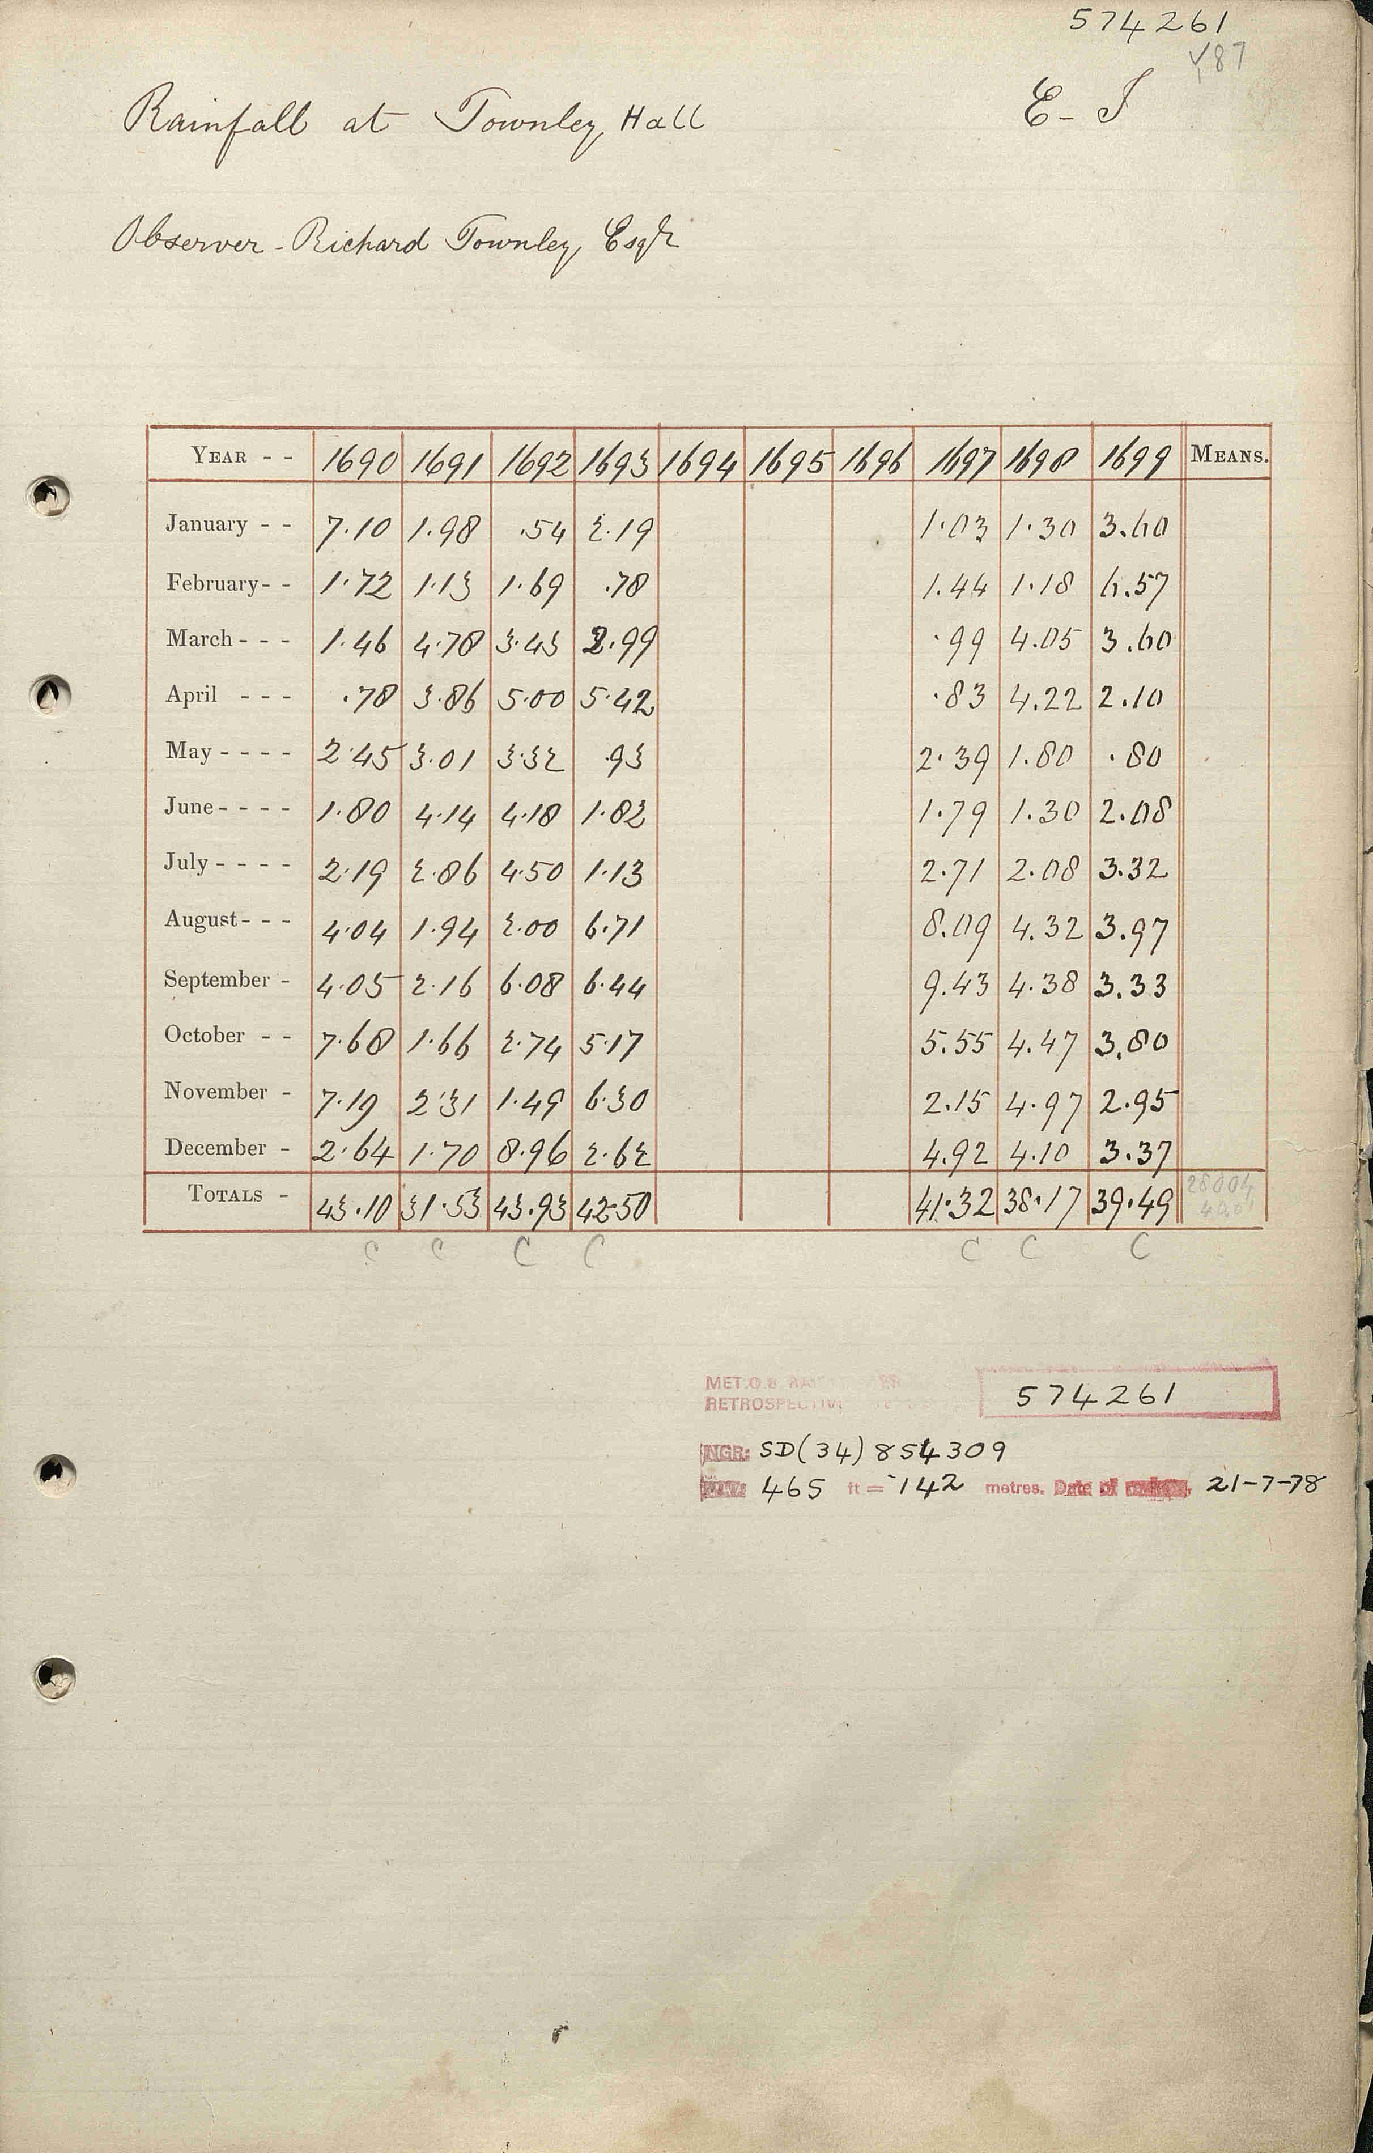 574261
√87
E - I
Rainfall at Townley Hall
Observer - Richard Townley, Esqr
YEAR - - 1690 1691 1692 1693 1694 1695 1696 1697 1698 1699 MEANS.
January - - 7.10 1.98 .54 2.19 1.03 1.30 3.60
February - - 1.72 1.13 1.69 .78 1.44 1.18 6.57
March - - - 1.46 4.78 3.43 2.99 .99 4.05 3.60
April - - - .78 3.86 5.00 5.42 .83 4.22 2.10
May - - - - 2.45 3.01 3.32 .93 2.39 1.80 .80
June - - - - 1.80 4.14 4.18 1.82 1.79 1.30 2.08
July - - - - 2.19 2.86 4.50 1.13 2.71 2.08 3.32
August - - - 4.04 1.94 2.00 6.71 8.09 4.32 3.97
September - 4.05 2.16 6.08 6.44 9.43 4.38 3.33
October - - 7.68 1.66 2.74 5.17 5.55 4.47 3.80
November - 7.19 2.31 1.49 6.30 2.15 4.97 2.95
December - 2.64 1.70 8.96 2.62 4.92 4.10 3.37
TOTALS - 43.10 31.53 43.93 42.50 41.32 38.17 39.49
C C C C C C C
MET.O.8
RETROSPECTIVE 574261
NGR: SD(34)854309
465 ft = 142 metres. Date of 21-7-78